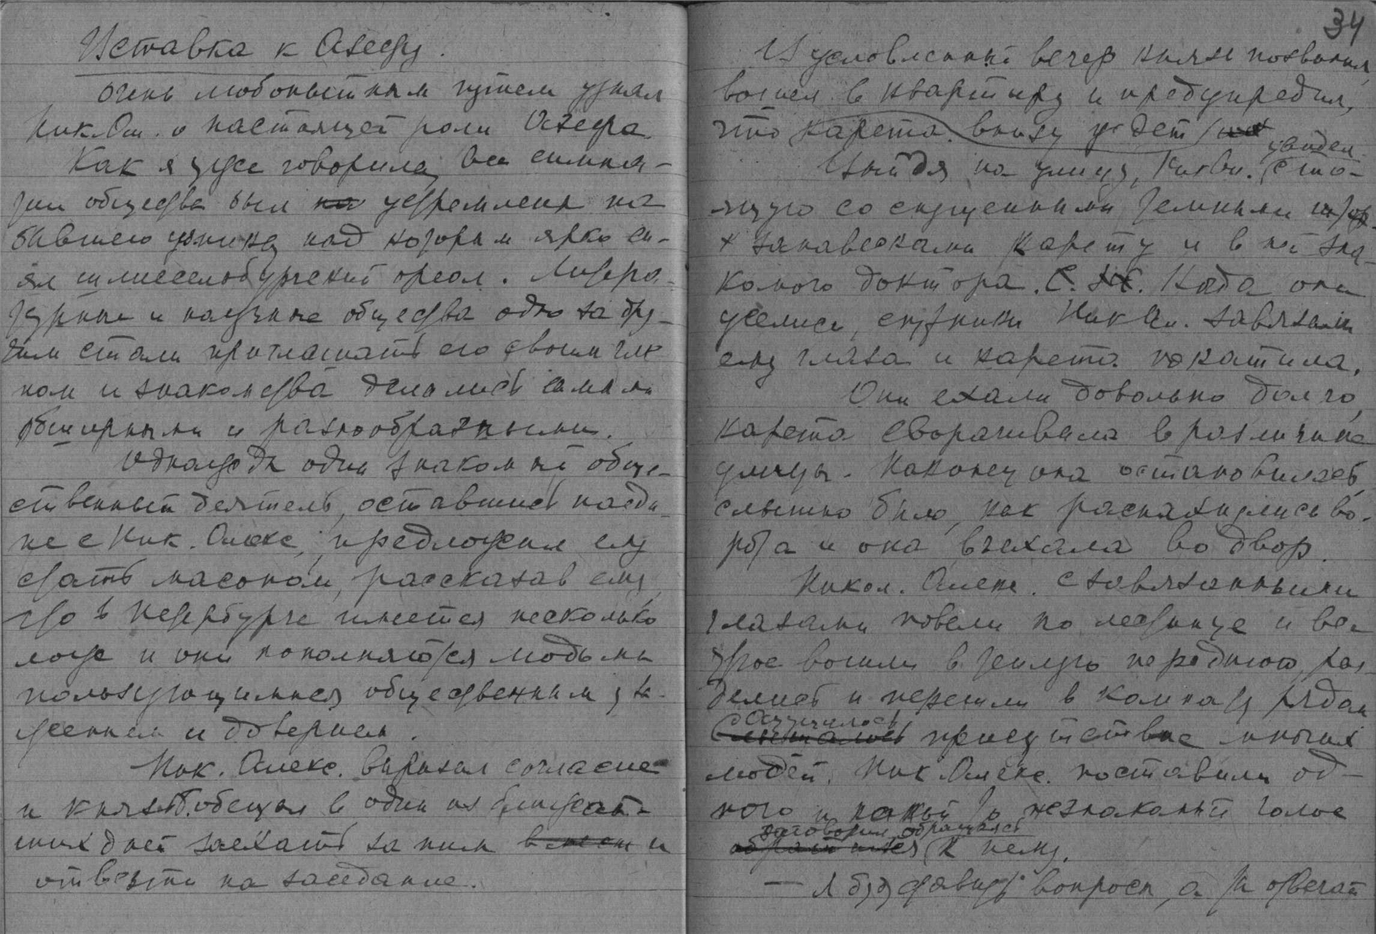 Вставка к Азефу.
Очень любопытным путем узнал
Ник. Ал. о настоящей роли Азефа.
Как я уже говорила, все симпа-
тии общества были на устремлены на
бывшего узника над которым ярко си-
ял шлиссельбургский ореол. Литера-
турные и научные общества одно за дру-
гим стали приглашать его своим чле
ном и знакомства делались самыми
обширными и разнообразными.
Однажды один знакомый обще-
ственный деятель, оставшись наеди-
не с Ник. Алекс., предложил ему
стать масоном, рассказав ему,
что в Петербурге имеется несколько
лож и они пополняются людьми
пользующимися общественным ува-
жением и доверием.
Ник. Алекс. выразил согласие
и князь обещал в один из ближай-
ших дней заехать за ним вместе и
отвезти на заседание.
34
В условленный вечер князь позвонил,
вошел в квартиру и предупредил,
что карета внизу ждет
Выйдя на улицу, Ник. Ал. увидел сто-
ящую со спущенными темными
занавесками карету и в ней зна-
комого доктора. Когда они
уселись, спутники Ник. Ал. завязали
ему глаза и карета покатила.
Они ехали довольно долго,
карета сворачивала в различные
улицы. Наконец она остановилась,
слышно было, как распахнулись во-
рота и она въехала во двор.
Никол. Алекс. с завязанными
глазами повели по лестнице и все
трое вошли в теплую переднюю, раз-
делись и перешли в комнату, рядом
ощущалось
слышалось присутствие многих
людей. Ник. Алекс. поставили од-
ного и какой то незнакомый голос
заговорил обращаясь
обратился к нему.
— Я буду ставить вопросы, а Вы отвечай